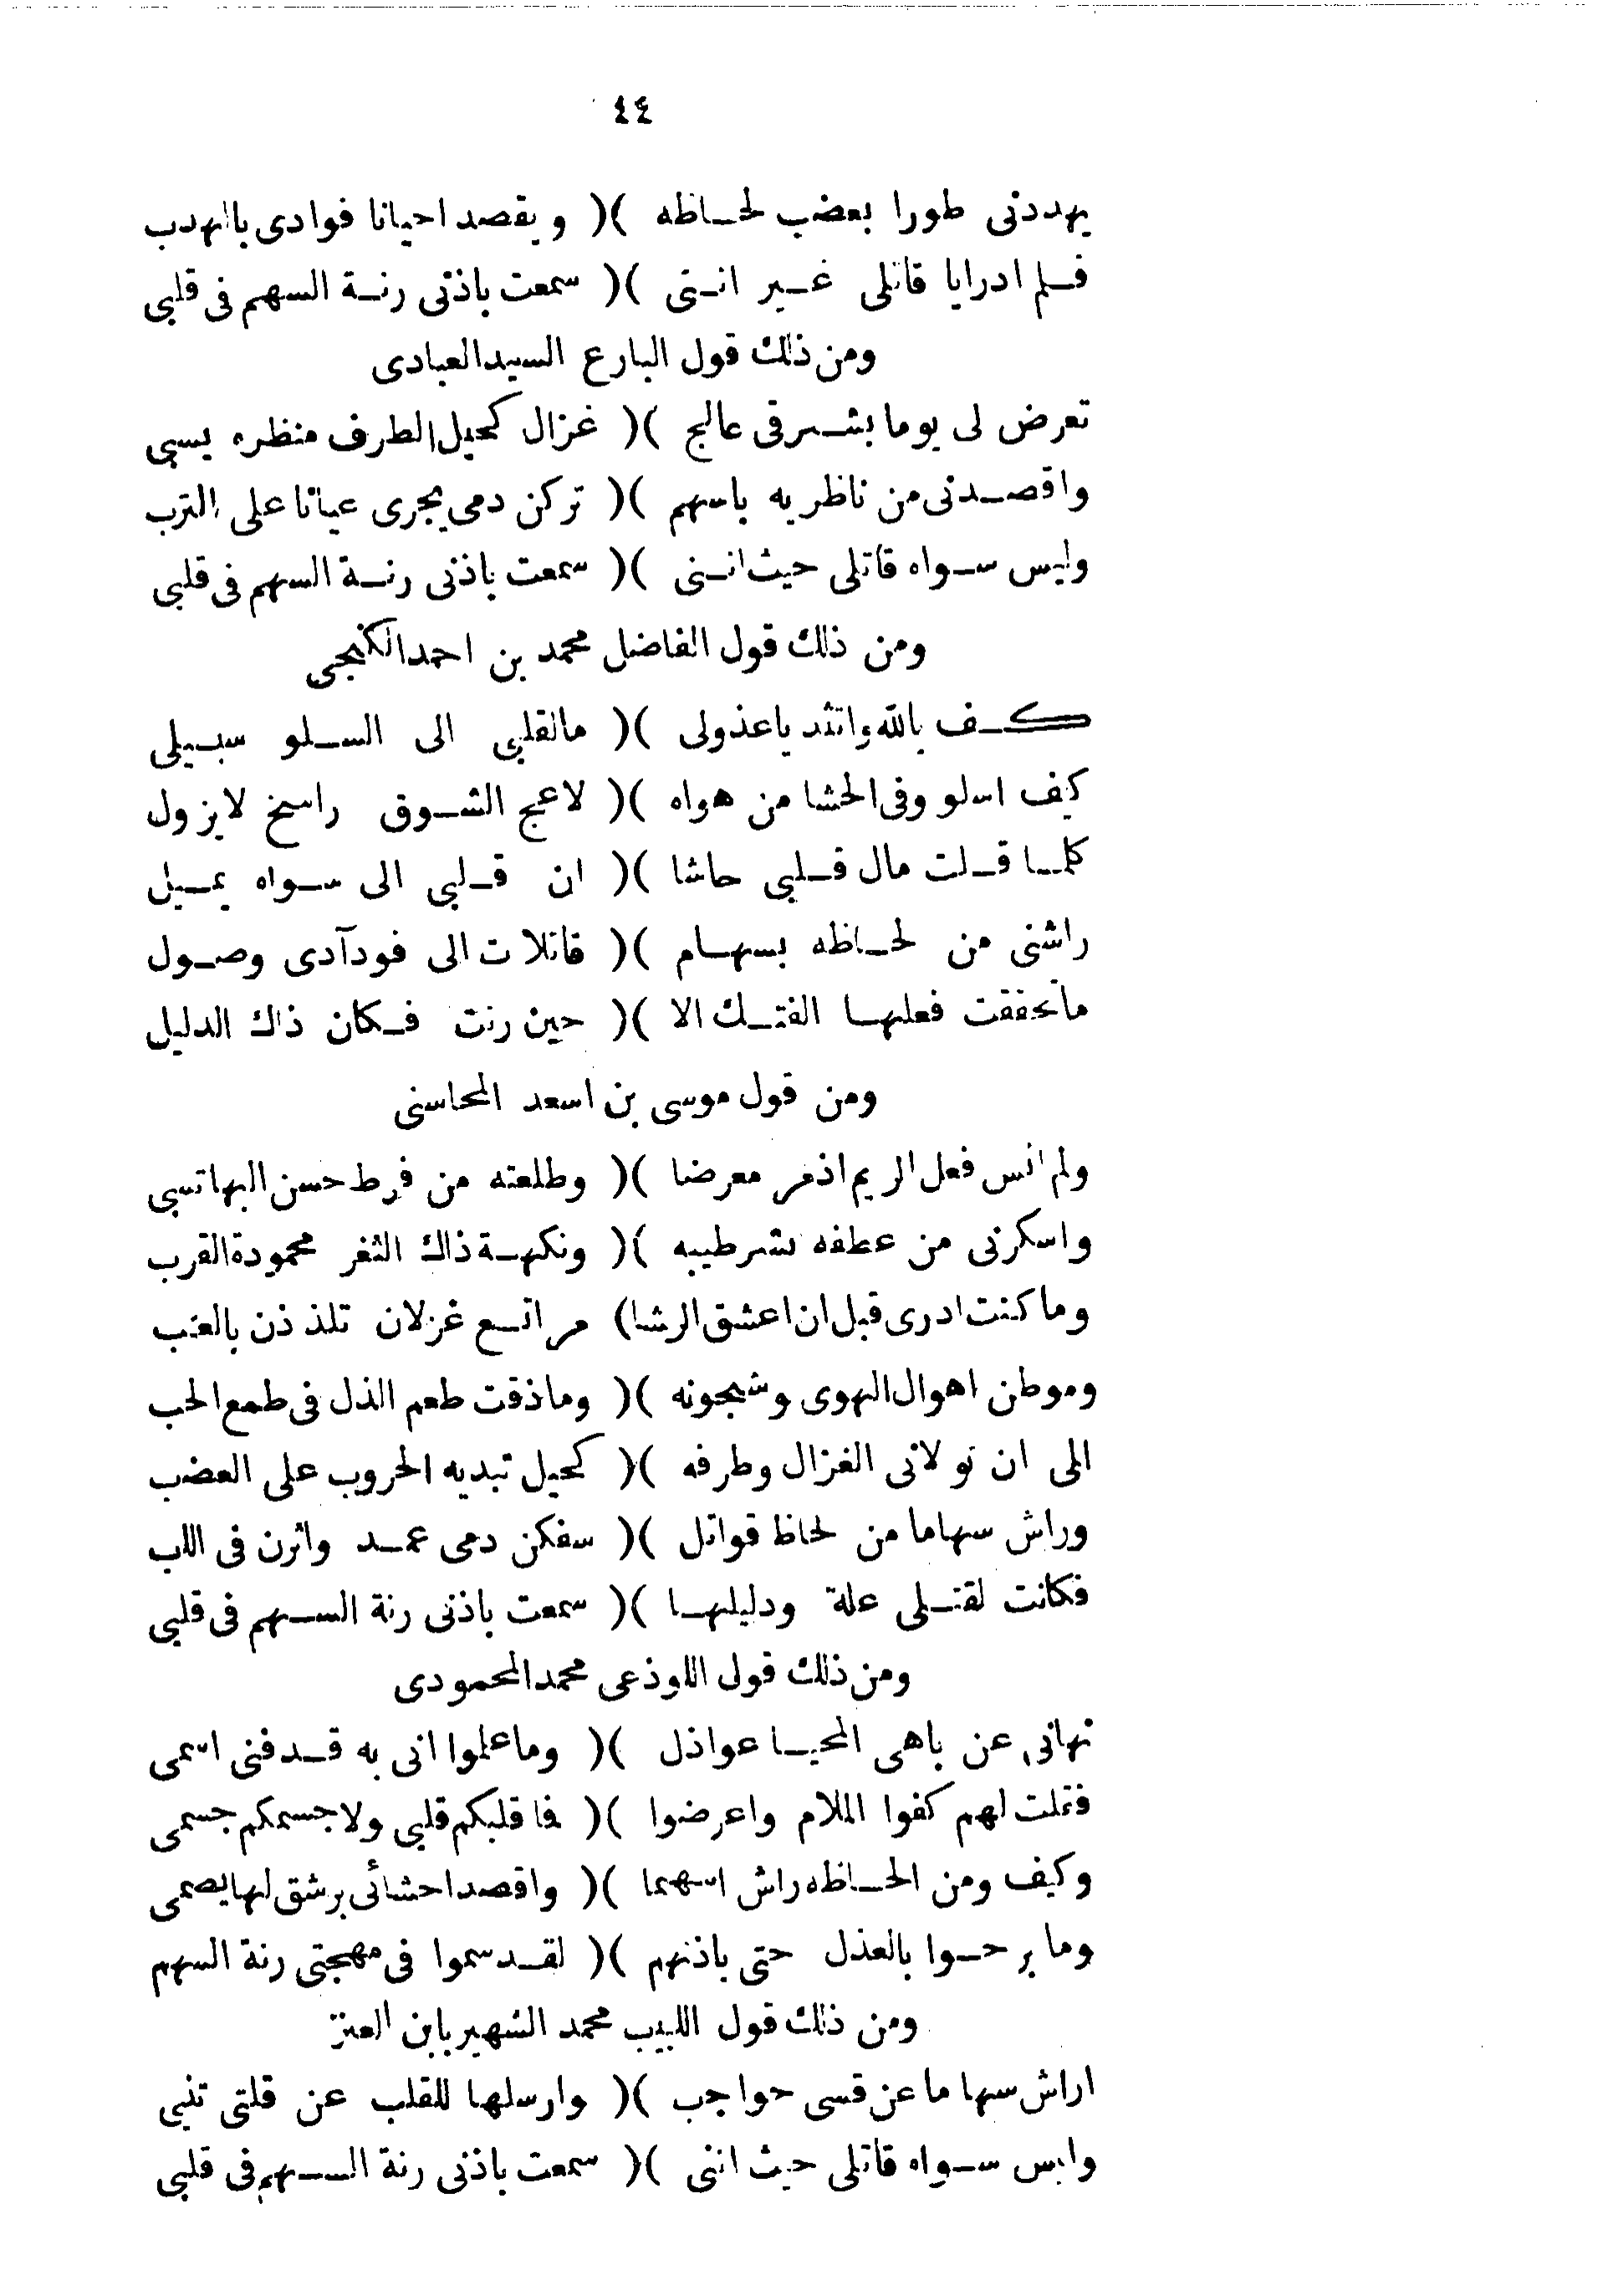 ٤٤
يهددنى طورا بعضب لحـاظه )( ويقصد احيانا فوادى بالهدب
فـلم ادرايا قاتلى غـير انـنى )( سمعت باذنى رنـة السهم فى قلبى
ومن ذلك قول البارع السيدالعبادى
تعرض لى يوما بشـرقى عالج )( غزال كحيل الطرف منظره يسبى
واقصـدنى من ناظريه باسهم )( تركن دمى يجرى عيانا على الترب
وليس سـواه قاتلى حيث انـنى )( سمعت باذنى رنـة السهم فى قلبى
ومن ذلك قول الفاضل محمد بن احمدالكنجى
كـف بالله واتئد ياعذولى )( مالقلبى الى السـلو سبـيلى
كيف اسلو وفى الحشا من هواه )( لاعج الشـوق راسخ لايزول
كلمـا قـلت مال قـلبى حاشا )( ان قـلبى الى سـواه يمـيل
راشنى من لحـاظه بسهـام )( قاتلات الى فودآدى وصـول
ماتحققت فعلهـا الفتـك الا )( حين رنت فـكان ذاك الدليل
ومن قول موسى بن اسعد المحاسنى
ولم انس فعل الريم اذمر معرضا )( وطلعته من فرط حسن البهاتسبى
واسكرنى من عطفه نشرطيبه )( ونكهـة ذاك الثغر محمودة القرب
وما كنت ادرى قبل ان اعشق الرشا) مراتـع غزلان تلذذن بالعتب
وموطن اهوال الهوى وشجونه )( وماذقت طعم الذل فى طمع الحب
الى ان تولانى الغزال وطرفه )( كحيل تبديه الحروب على العضب
وراش سهاما من لحاظ قواتل )( سفكن دمى عمـد واثرن فى اللب
فكانت لقتـلى علة ودليلهـا )( سمعت باذنى رنة السـهم فى قلبى
ومن ذلك قول اللوذعى محمدالمحمودى
نهانى عن باهى المحيـا عواذل )( وماعلموا انى به قـدفنى اسمى
فقلت لهم كفوا الملام واعرضوا )( فا قلبكم قلبى ولا جسمكم جسمى
وكيف ومن الحـاظه راش اسهما )( واقصداحشائى برشق لهايصمى
وما برحـوا بالعذل حتى باذنهم )( لقـد سموا فى مهجتى رنة السهم
ومن ذلك قول اللبيب محمد الشهير بابن العنز
اراش سهاما عن قسى حواجب )( وارسلها للقلب عن قلتى تنبى
وليس سـواه قاتلى حيث اننى )( سمعت باذنى رنة السـهم فى قلبى